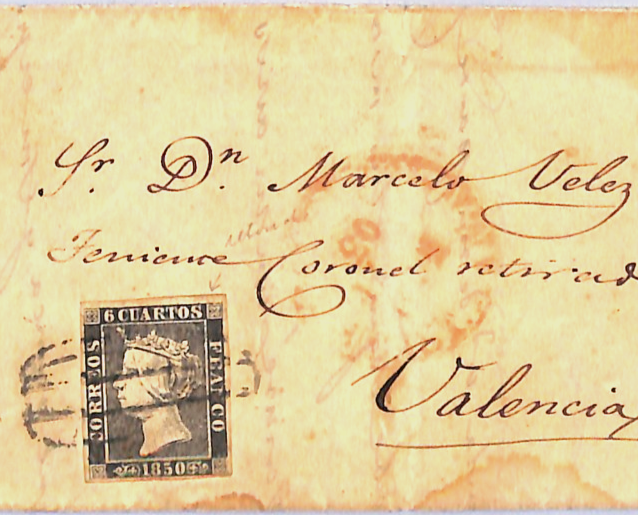 Sr. Dn. Marcelo Velez
Teniente Coronel retirad
Valencia
6 CUARTOS
CORREOS
FRANCO
1850